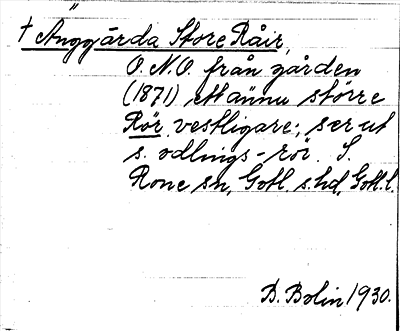 † Änggårda Store Råir,
O.N.O. från gården
(1871) ett ännu större
Rör vestligare; ser ut
s. odlings-rör. S.
Rone sn, Gotl. s. hd, Gotl. l.
B. Bolin 1930.